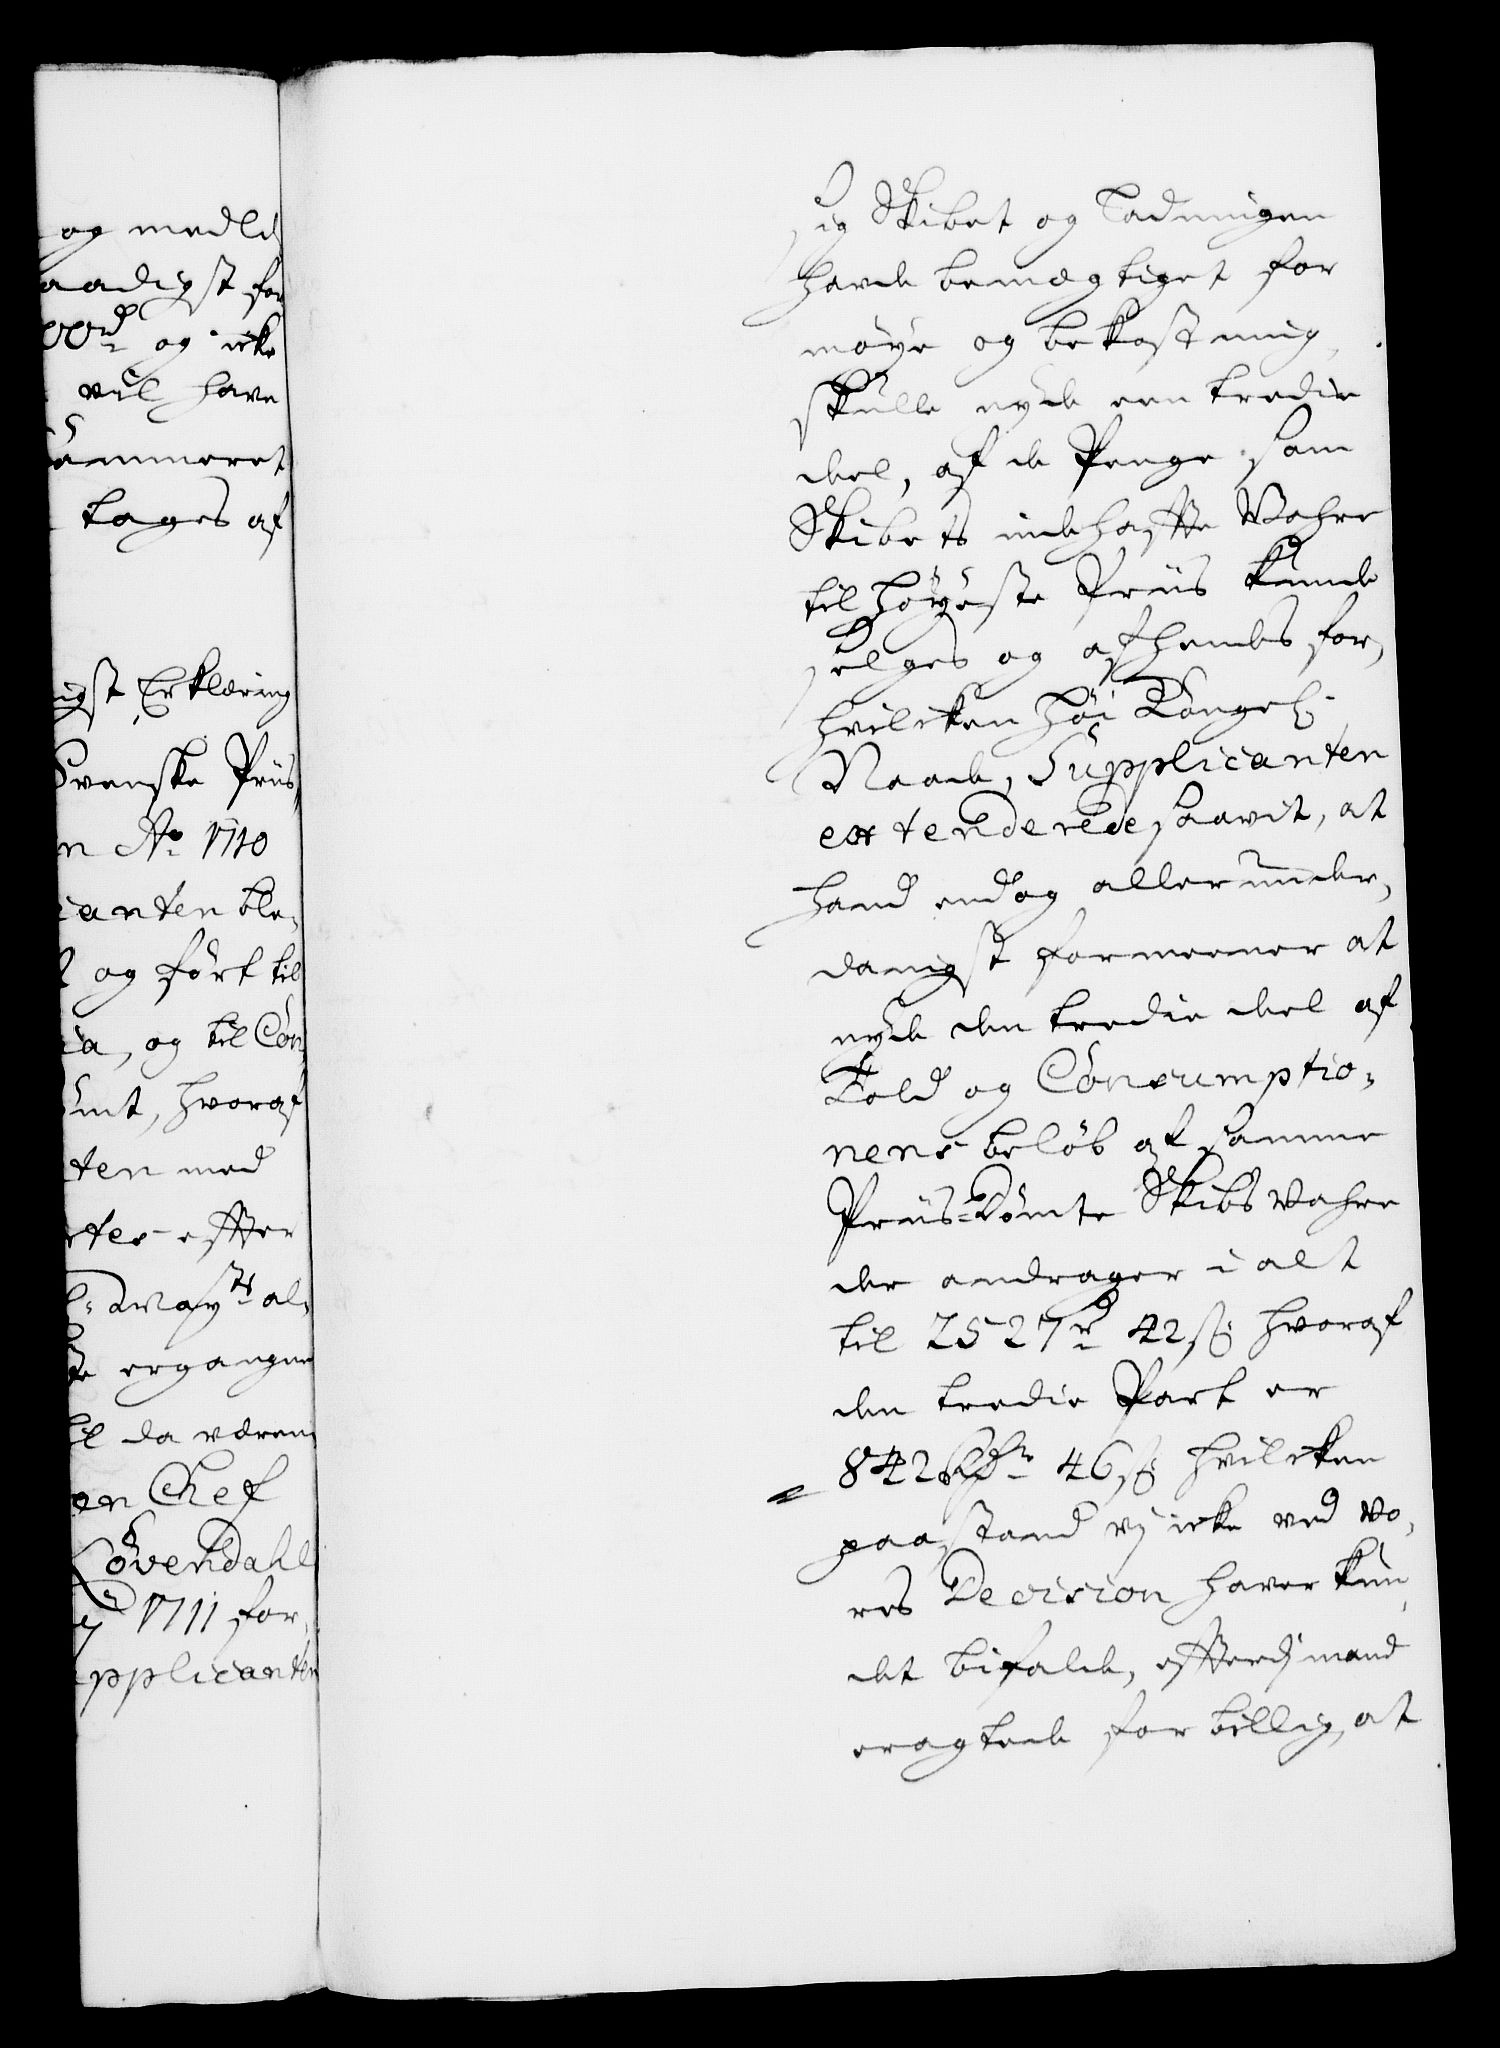 og medld
aadigst for
00rd og icke
vil have
Cammeret
tages af
igst Erklæring
Svenske Priis
n Ao 1710
icanten ble¬
t og ført til
ia, og til Con
ømt, hvoraf
ten med
rter efter
l: Mayts al¬
te ergangne
til da væren
en Chef
Løvendahl
1711 for¬
pplicanten
sig Skibet og Ladningen
havde bemægtiget for
møye og bekostning
skulle nyde een tredie
deel, af de Penge som
Skibets indehaffte Wahre
til høyeste Priis kunde
selges og afhendes for,
hvilcken høi Kongel:
Naade, Supplicanten
extenderede saavit, at
hand endog allerunder¬
danigst formeener at
nyde den tredie deel af
Told og Consumptio¬
nens beløb af samme
Priis-dømte Skibs Wahre
der andrager i alt
til 2527rd 42s hvoraf
den tredie Part er
842 Rdr 46s hvilcken
paastand vj icke ved vo¬
res Decision haver kun¬
det bifalde, efterdj mand
eragtede for billig, at